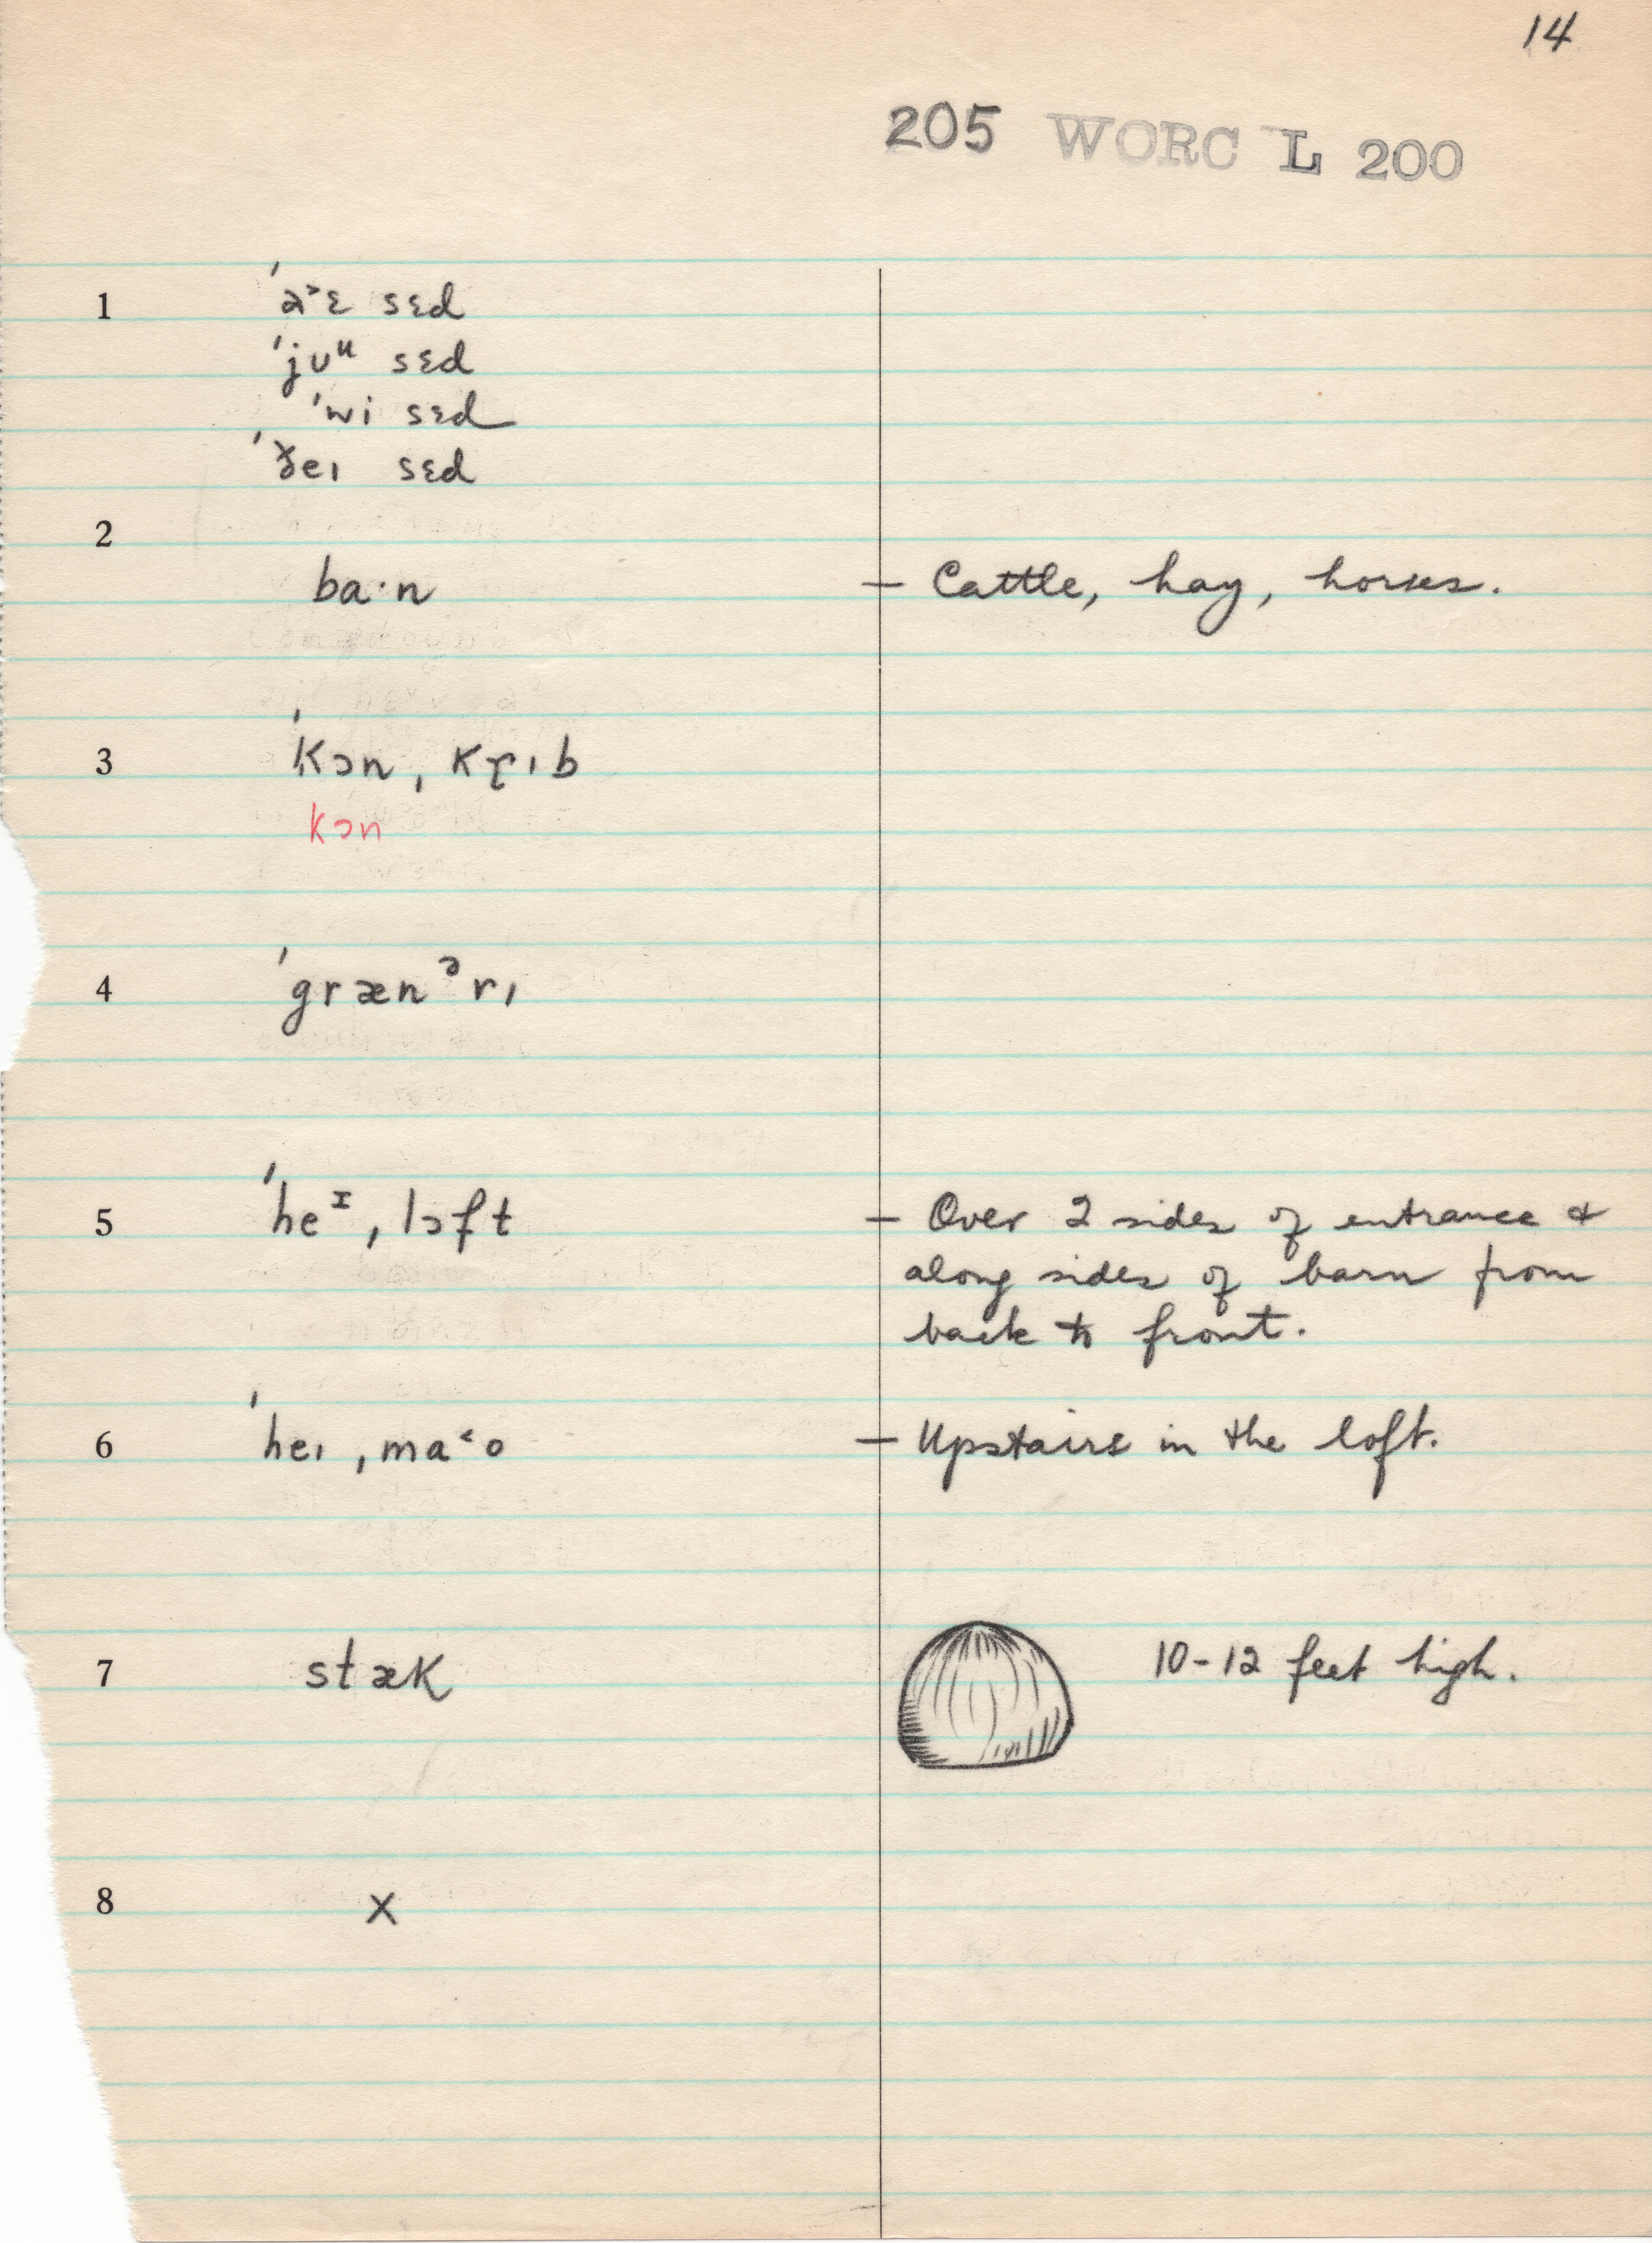 14
205 WORC L 200
1 'a˃ɛ sɛd
'jʊᵘ sɛd
'wi sɛd
'ðeɪ sɛd
2
ba·n – Cattle, hay, horses.
3 'kɔn ˌkrɪb
kɔn
4 'grænᵊrɪ
5 'heᶦ ˌlɔft – Over 2 sides of entrance &
along sides of barn from
back to front.
6 'heɪ ˌma˂o – Upstairs in the loft.
7 stæk 10-12 feet high.
8 x